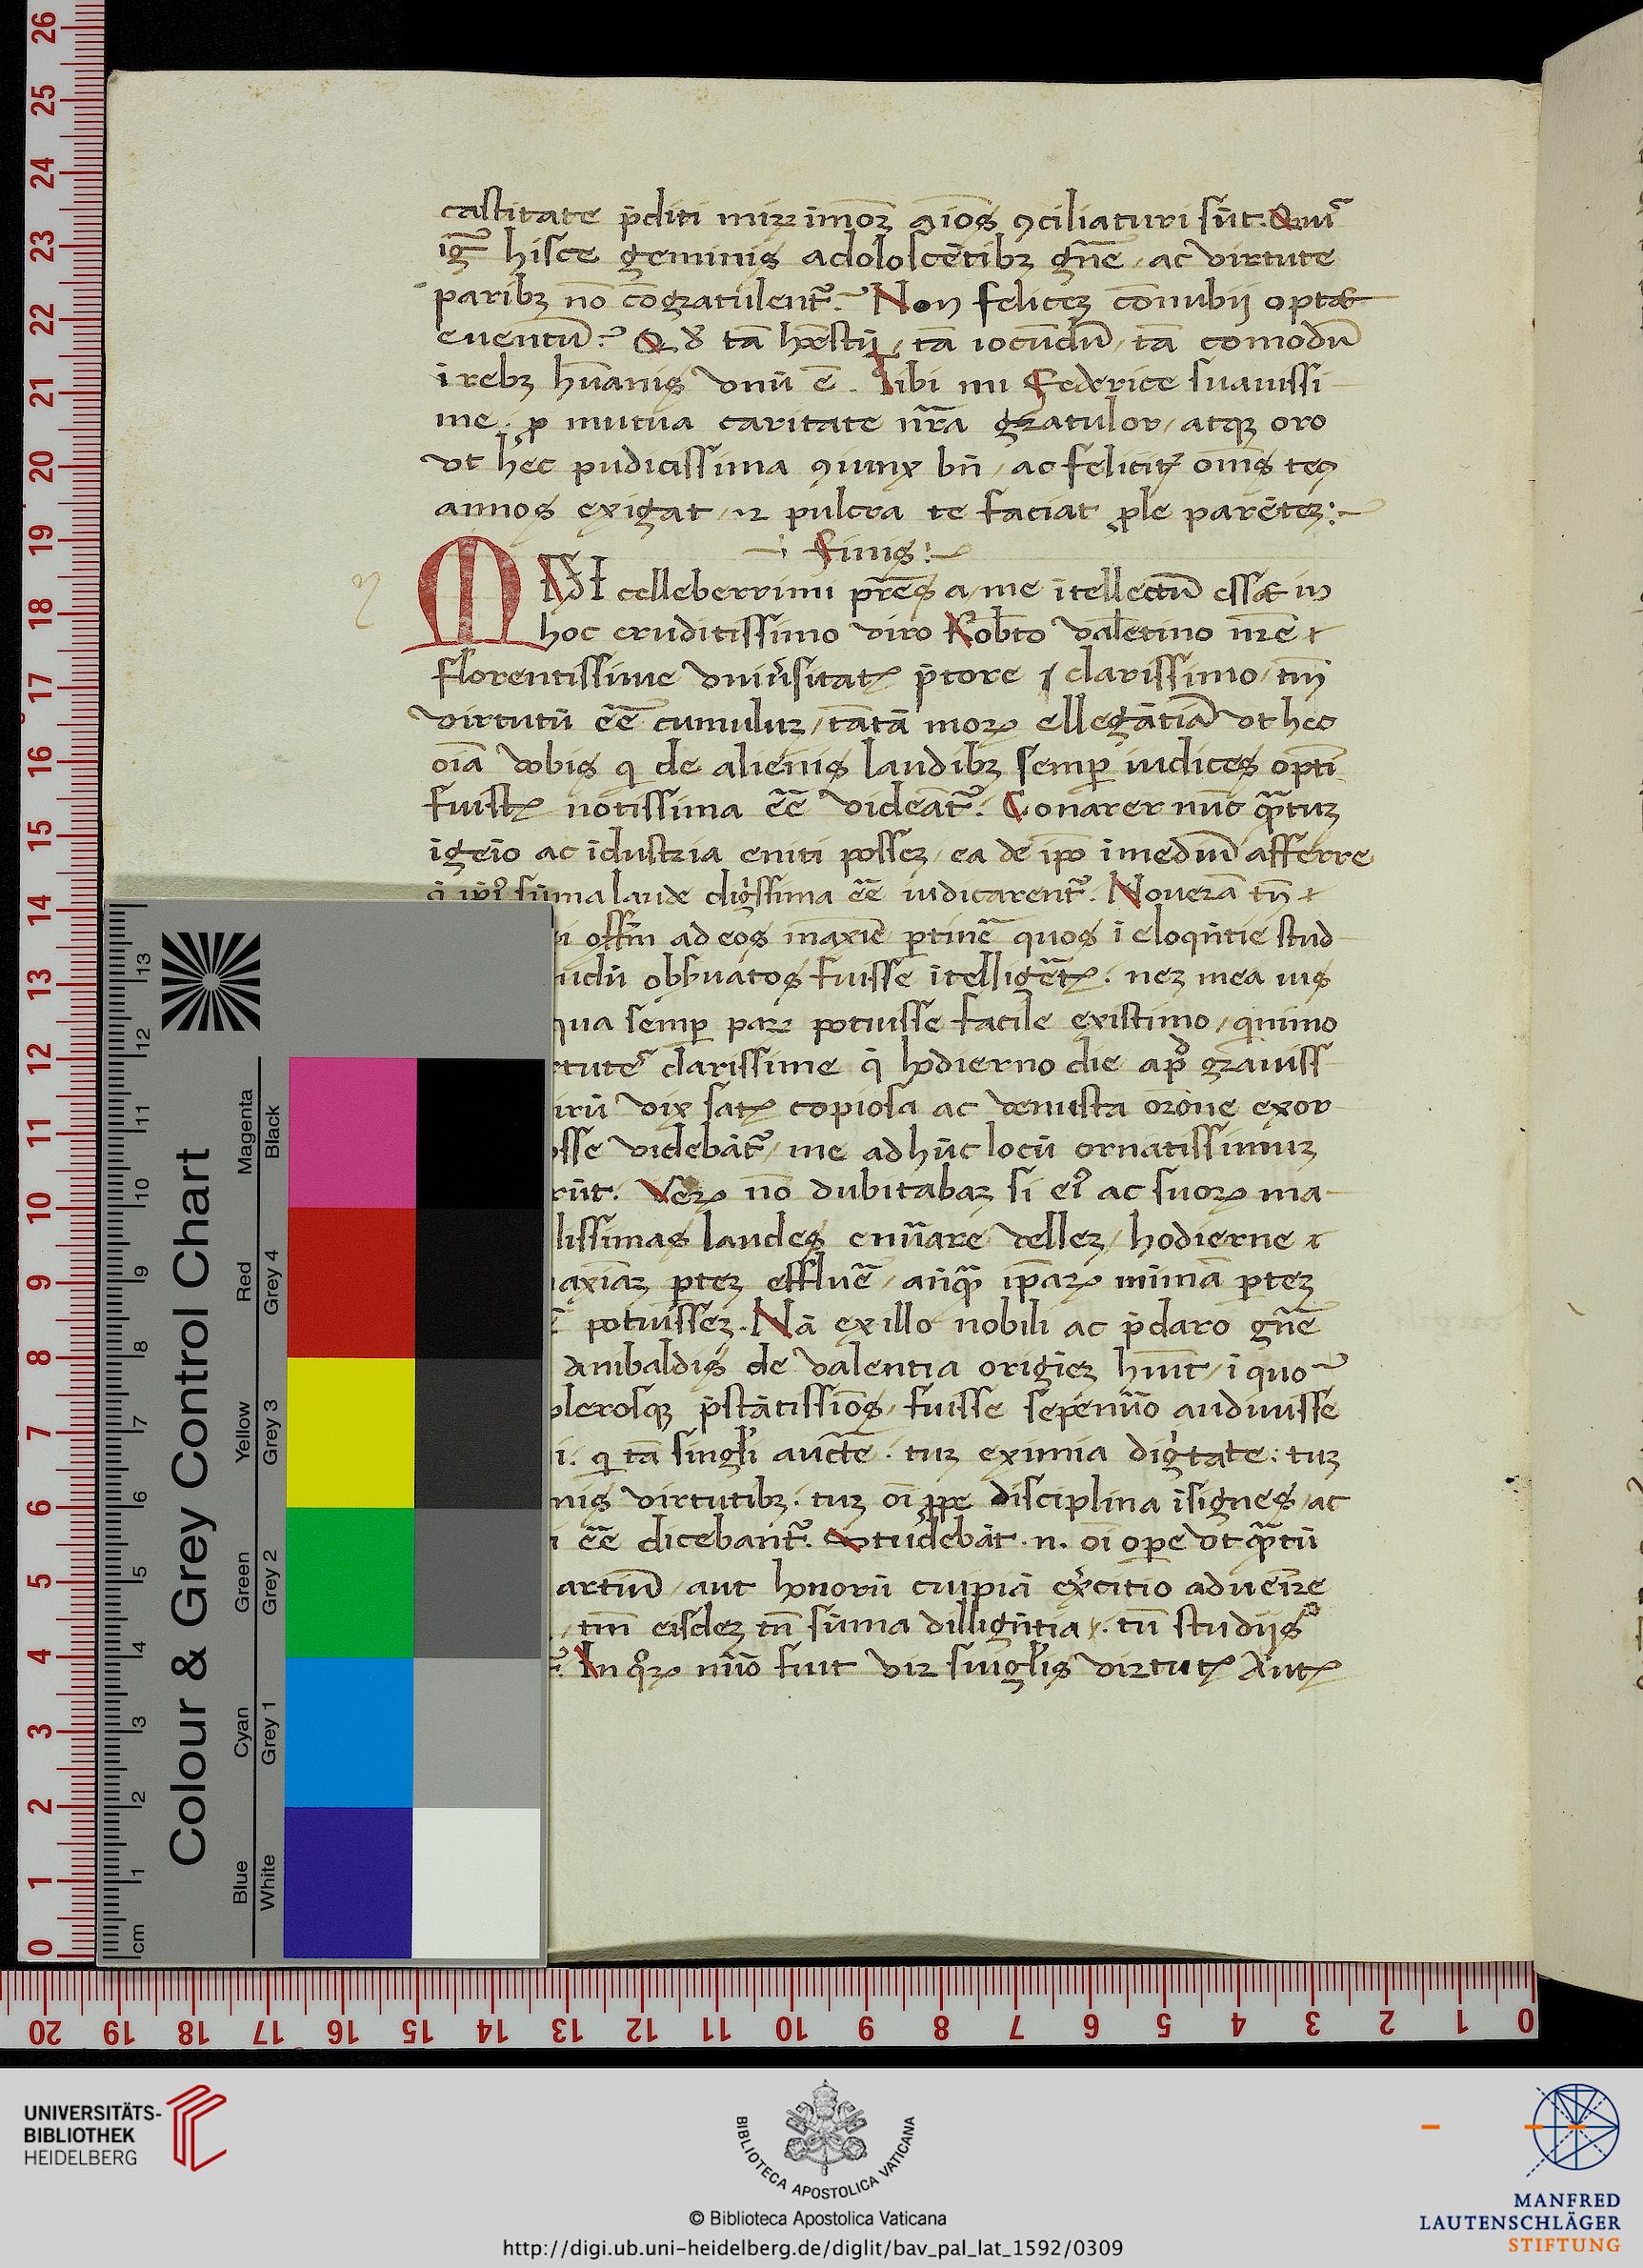 castitate p̄diti mirꝝ imoꝝ aīos ꝯciliaturi sūt. Qui
igr̄ hisce geminis adoloscētibꝫ gn̄e, ac virtute
paribꝫ nō cōgratulent᷑. Non felicez cōnubij optāt
eventū? Qd tā hōestū, tā iocūdū, tā comodū
ī rebꝫ hūanis vnū ē. Tibi mi Federice suavissi-
me. ꝓ mutua caritate nr̄a gratulor, atqꝫ oro
vt hec pudicissima ꝯiunx bn̄, ac felicitꝭ oīns tecū
annos exigat, ⁊ pulcra te faciat ꝓle parētez:
Finis:
MNSI celleberrimi pr̄es a, me ītellectū essꝫ in
hoc eruditissimo viro Robto valētino nr̄e
florentissime vniūsitatꝭ p̄tore clarissimo, tm̄
virtutū eē̄ cumuluꝫ, tātā moꝝ ellegātiā vt hec
oīa vobis q̄ de alienis laudibꝫ semꝑ iudices optī
fuistꝭ notissima eē̄ videāt᷑. Conarer nūc q̄ꝫtuꝫ
īgeīo ac īdustria eniti possez, ea de ip̄o ī mediū afferre
sūma laude dig̅ssima eē̄ iudicarent᷑. Noverā tn̄
offm̄ ad eos maxīe ꝑtinē̄ quos ī eloqn̄tie stud-
obsṽatos fuisse ītelligētꝭ. neꝫ mea ius
qua semꝑ parꝫ potuisse facile existimo, quīimo
clarissime q̄ hodierno die apd̄ gravissi-
vix satꝭ copiosa ac venusta orōne exor-
osse videbāt᷑, me ad hūc locū ornatissimuꝫ
rūt. Veꝝ nō dubitabaꝫ si eiꝰ ac suoꝝ ma-
lissimas laudes enūare vellez, hodierne
maxīaꝫ ꝑtez effluē̄, anq̄ꝫ ip̄aꝝ mimā ꝑtez
potuissez. Nā ex illo nobili ac p̄claro gn̄e
Anibaldis de valentia origiez hūit, ī quo
plerosqꝫ p̄stātissīos, fuisse sepenūo audivisse
q̄ tā singl̄i auctē. tuꝫ eximia dig̅tate: tuꝫ
nis virtutibꝫ. tuꝫ oī ꝓpe disciplina īsignes, ac
eē̄ dicebant᷑. Studebāt. n. oī oꝑe vt q̄ꝫtū
artiū, aut honorū cuipiā exercitio advēire
, tm̄ eisdez tn̄ sūma dilligētia. tū studijs
In qꝝ nūo fuit vir singl̄is virtutꝭ Antꝭ
Colour & Grey Control Chart
Magenta
Black
Red
Grey 4
Yellow
Grey 3
Green
Grey 2
Cyan
Grey 1
Blue
White
cm
UNIVERSITÄTS-
BIBLIOTHEK
HEIDELBERG
BIBLIOTECA APOSTOLICA VATICANA
© Biblioteca Apostolica Vaticana
http://digi.ub.uni-heidelberg.de/diglit/bav_pal_lat_1592/0309
MANFRED
LAUTENSCHLÄGER
STIFTUNG